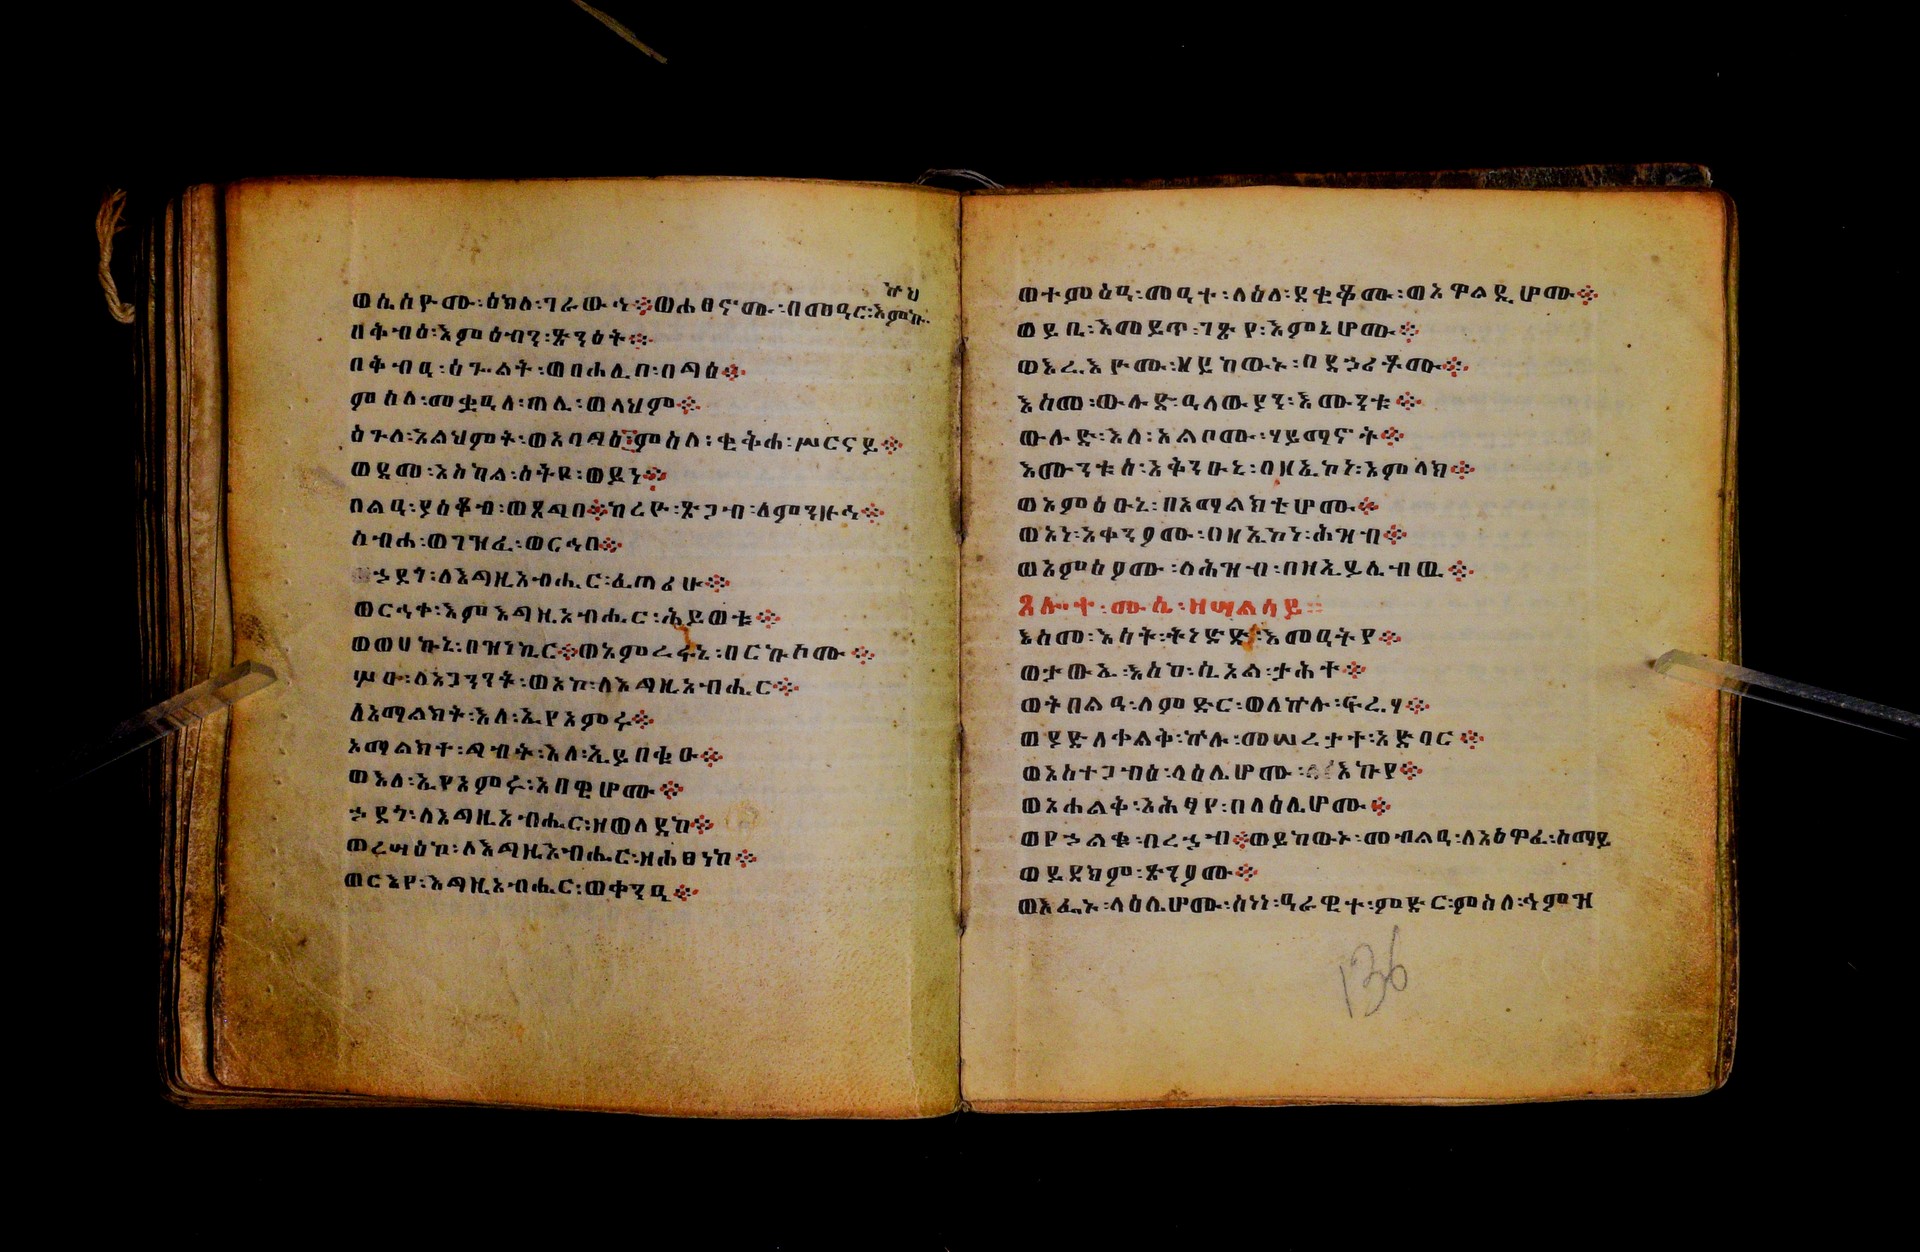 ወሲስዮሙ፡ዕክለ፡ገራውኅ፨ወሐፀኖሙ፡በመዐር፡እምኰ
ዘቅብዕ፡እምዕብን፡ጽንዕት፨
በቅብዐ፡ዕጐልት፡ወበሐሊበ፡በጣዕ፨
ምስለ፡መቋዒለ፡ጠሊ፡ወላህም፨
ዕጕለ፡አልህምት፡ወአባግዕ፡ምስለ፡ቂቅሐ፡ሥርናይ፨
ወደመ፡አስካል፡ሰትዩ፡ወይነ፨
በልዐ፡ያዕቆብ፡ወጸግበ፨ከረዮ፡ጽጋብ፡ለምንዙኅ፨
ስብሐ፡ወገዝፈ፡ወርኅበ፨
ኃደጎ፡ለእግዚአብሔር፡ፈጣሪሁ፨
ወርኅቀ፡እምእግዚአብሔር፡ሕይወቱ፨
ወወሀኩኒ፡በዝነኪር፨ወአምረሩኒ፡በርኩሶሙ፨
ሦዑ፡ለአጋንንት፡ወአኮ፡ለእግዚአብሔር፨
ለአማልክት፡እለ፡ኢየአምሩ፨
አማልክት፡ግብት፡እለ፡ኢይበቁዑ፨
ወእለ፡ኢየአምሩ፡አበዊሆሙ፨
ኃደጎ፡ለእግዚአብሔር፡ዘወለደከ፨
ወረሣዕኮ፡ለእግዚአብሔር፡ዘሐፀነከ፨
ወርእየ፡እግዚአብሔር፡ወቀንዐ፨
ወተምዕዐ፡መዐተ፡ላዕለ፡ደቂቆሙ፡ወአዋልዲሆሙ፨
ወይቤ፡እመይጥ፡ገጽየ፡እምኔሆሙ፨
ወእሬእዮሙ፡ዘይከውኑ፡በደኃሪቶሙ፨
እስመ፡ውሉድ፡ዓላውያን፡እሙንቱ፨
ውሉድ፡እለ፡አልቦሙ፡ሃይማኖት፨
እሙንቱሰ፡አቅንዑኒ፡በዘኢኮነ፡አምላክ፨
ወአምዕዑኒ፡በአማልክቲሆሙ፨
ወአነ፡አቀንዖሙ፡በዘኢኮነ፡ሕዝብ፨
ወአምዕዖሙ፡ለሕዝብ፡በዘኢይሌብዉ፨
ጸሎተ፡ሙሴ፡ዘሣልሳይ፡፡
እስመ፡እሳት፡ትነድድ፡እመዐትየ፨
ወታውኢ፡እስከ፡ሲኦል፡ታሕተ፨
ወትበልዓ፡ለምድር፡ወለኵሉ፡ፍሬሃ፨
ወያድለቀልቅ፡ኵሉ፡መሠረታተ፡አድባር፨
ወአስተጋብዕ፡ላዕሌሆሙ፡እኩየ፨
ወአሐልቅ፡አሕፃየ፡በላዕሌሆሙ፨
ወየኃልቁ፡በረኃብ፨ወይከውኑ፡መብልዐ፡ለአዕዋፈ፡ሰማይ
ወይደክም፡ጽንዖሙ፨
ወእፌኑ፡ላዕሌሆሙ፡ስነነ፡ዓራዊተ፡ምድር፡ምስለ፡ኅምዝ
136